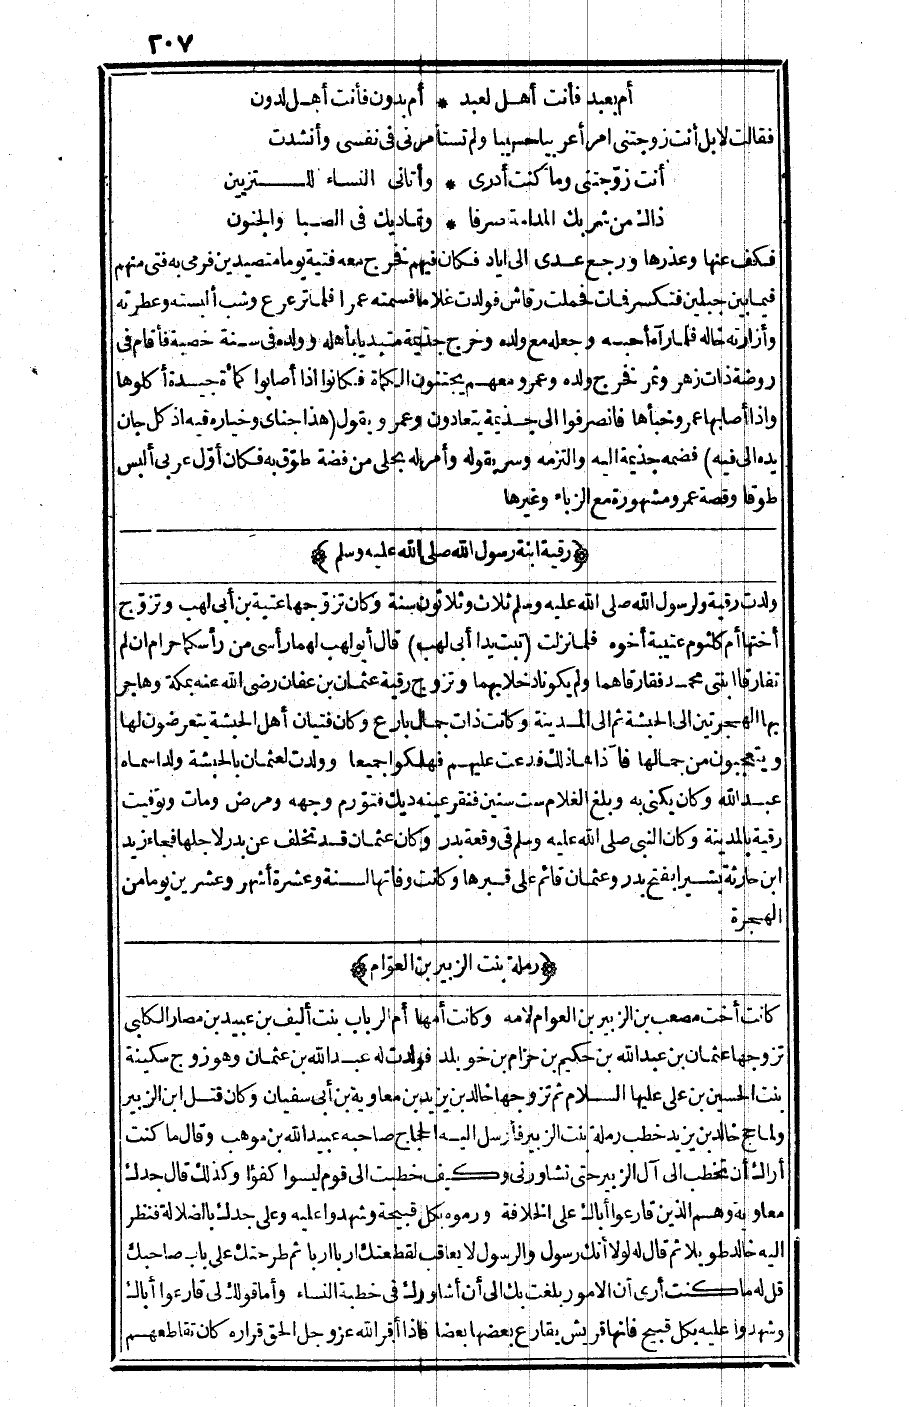 ٢٠٧
أم بعبد فأنت أهـل لعبد * أم بدون فأنت أهـل لدون
فقالت لا بل أنت زوجتنى امرأ عربيا حسيبا ولم تستأمرنى فى نفسى وأنشدت
أنت زوّجتنى وما كنت أدرى * وأتانى النساء للـــتزيين
ذاك من شربك المدامة صرفا * وتماديك فى الصبا والجنون
فكف عنها وعذرها ورجع عدى الى اياد فكان فيهم نخرج معه فتية يوما متصيدين فرمى به فتى منهم
فيما بين جبلين فتكسر فمات فحملت رقاش فولدت غلاما فسمته عمرا فلما ترعرع وشب ألبسته وعطرته
وأزارته خاله فلما رآه أحبه وجعله مع ولده وخرج جذيمة متبديا بأهله وولده فى سنة خصبة فأقام فى
روضة ذات زهر وثمر نخرج ولده وعمرو معهم يجتنون الكماة فكانوا اذا أصابوا كمأة جيدة أكلوها
واذا أصابها عمرو خبأها فانصرفوا الى جذيمة يتعادون وعمرو يقول (هذا جناى وخياره فيه اذ كل جان
يده الى فيه) فضمه جذيمة اليه والتزمه وسر بقوله وأمر له بحلى من فضة طوّق به فكان أوّل عربى ألبس
طوقا وقصة عمرو مشهورة مع الزباء وغيرها
﴿رقية ابنة رسول الله صلى الله عليه وسلم﴾
ولدت رقية ولرسول الله صلى الله عليه وسلم ثلاث وثلاثون سنة وكان تزوّجها عتبة بن أبى لهب وتزوّج
أختها أم كلثوم عتيبة أخوه فلما نزلت (تبت يدا أبى لهب) قال أبو لهب لهما رأسى من رأسكما حرام ان لم
تفارقا ابنتى محمد ففارقاهما ولم يكونا دخلا بهما وتزوّج رقية عثمان بن عفان رضى الله عنه بمكة وهاجر
بها الهجرتين الى الحبشة ثم الى المدينة وكانت ذات جمال بارع وكان فتيان أهل الحبشة يتعرضون لها
ويتعجبون من جمالها فآذاها ذلك فدعت عليهم فهلكوا جميعا وولدت لعثمان بالحبشة ولدا سماه
عبـد الله وكان يكنى به وبلغ الغلام ست سنين فنقر عينه ديك فتورّم وجهه ومرض ومات وتوفيت
رقية بالمدينة وكان النبى صلى الله عليه وسلم فى وقعة بدر وكان عثمان قد تخلف عن بدر لاجلها فجاء زيد
ابن حارثة بشيرا بفتح بدر وعثمان قائم على قبرها وكانت وفاتها لسنة وعشرة أشهر وعشرين يوما من
الهجرة
﴿رملة بنت الزبير بن العوّام﴾
كانت أخت مصعب بن الزبير بن العوام لامه وكانت أمها أم الرباب بنت أنيف بن عبيد بن مصار الكلبى
تزوجها عثمان بن عبد الله بن حكيم بن حزام بن خويلد فولدت له عبد الله بن عثمان وهو زوج سكينة
بنت الحسين بن على عليها السلام ثم تزوجها خالد بن يزيد بن معاوية بن أبى سفيان وكان قتل ابن الزبير
ولما حج خالد بن يزيد خطب رملة بنت الزبير فأرسل اليه الحجاج صاحبه عبيد الله بن موهب وقال ما كنت
أراك أن تخطب الى آل الزبير حتى تشاورنى وكيف خطبت الى قوم ليسوا كفؤا وكذلك قال جدك
معاوية وهـم الذين قارعوا أباك على الخلافة ورموه بكل قبيحة وشهدوا عليه وعلى جدك بالضلالة فنظر
اليه خالد طويلا ثم قال له لولا أنك رسول والرسول لا يعاقب لقطعتك اربا اربا ثم طرحتك على باب صاحبك
قل له ما كنت أرى أن الامور بلغت بك الى أن أشاورك فى خطبة النساء وأما قولك لى قارعوا أباك
وشهدوا عليه بكل قبيح فانها قريش يقارع بعضها بعضا فاذا أقر الله عز وجل الحق قراره كان تقاطعهـم